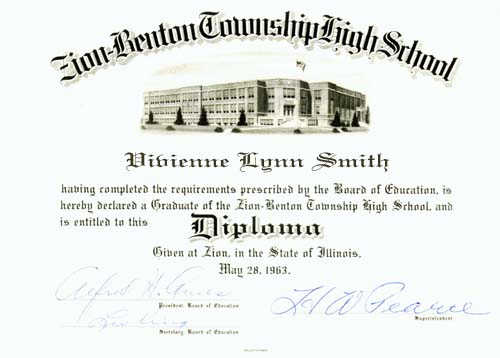 Zion-Benton Township High School
Vivienne Lynn Smith
having completed the requirements prescribed by the Board of Education, is
hereby declared a Graduate of the Zion-Benton Township High School, and
is entitled to this Diploma
Given at Zion, in the State of Illinois.
May 28, 1963.
Alfred H.
H W Pearce
President, Board of Education
Superintendent
Secretary, Board of Education